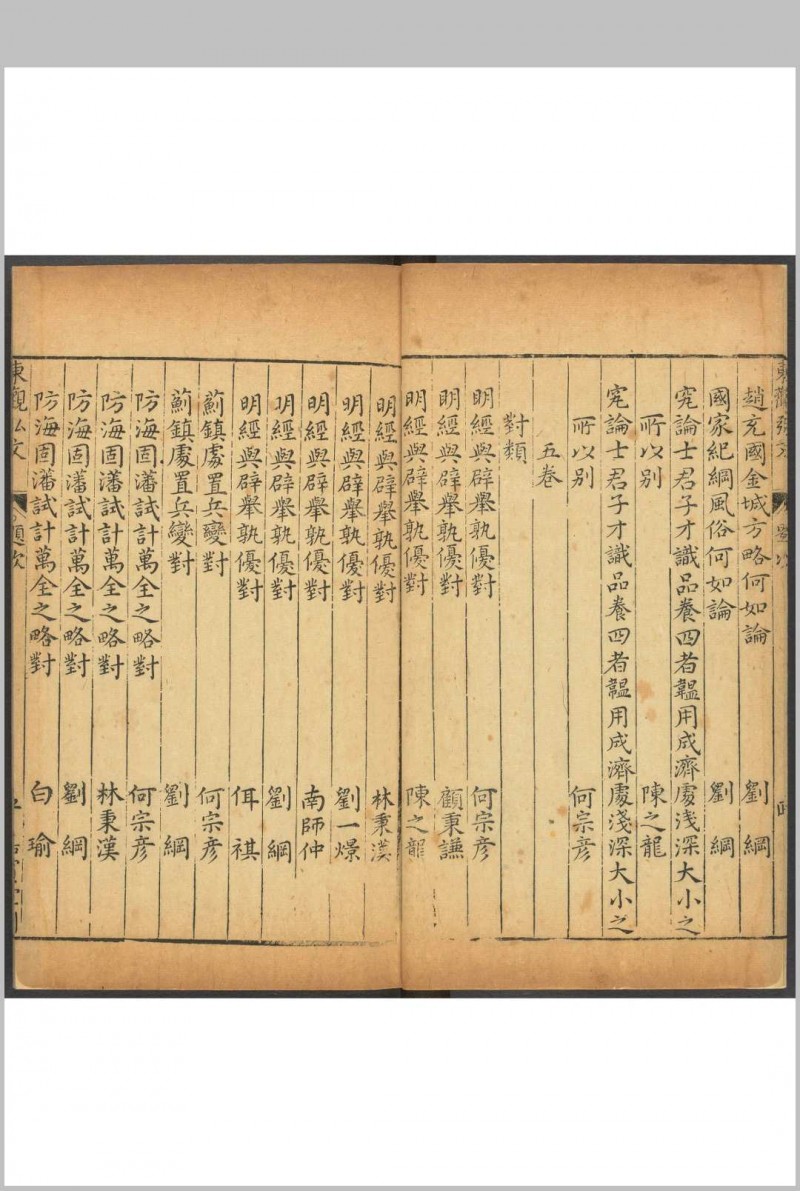 趙充國金城方略何如論 劉綱
國家紀綱風俗何如論 劉綱
究論士君子才識品養四者韞用成濟處淺深大小之
所以別 陳之龍
究論士君子才識品養四者韞用成濟處淺深大小之
所以别 何宗彥
五卷
對類
明經與辟舉孰優對 何宗彦
明經與辟舉孰優對 顧秉謙
明經與辟舉孰優對 陳之龍
明經與辟舉孰優對 林秉漢
明經與辟舉孰優對 劉一燝
明經與辟舉孰優對 南師仲
明經與辟舉孰優對 劉綱
明經與辟舉孰優對 佴祺
薊鎮處置兵變對 何宗彦
薊鎮處置兵變對 劉綱
防海固藩試計萬全之略對 何宗彦
防海固藩試計萬全之略對 林秉漢
防海固藩試計萬全之略對 劉綱
防海固藩試計萬全之略對 白瑜
東觀弘文 題次